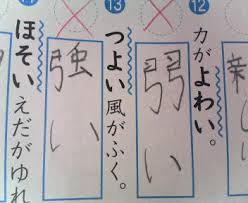 ⑫
力がよわい。
弱い
⑬
つよい風がふく。
強い
ほそいえだがゆれ